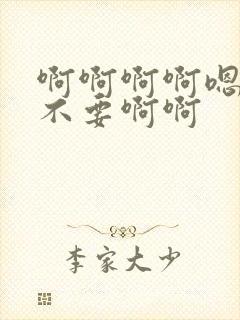 啊啊啊啊嗯
不要啊啊
李家大少